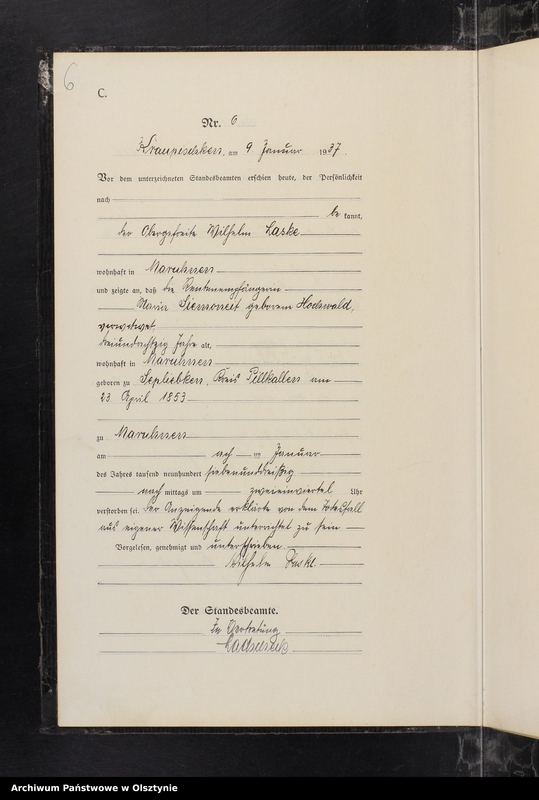 6
C.
Nr. 6
Kraupischken, am 9 Januar 1937
Vor dem unterzeichneten Standesbeamten erschien heute, der Persönlichkeit
nach
be kannt,
der Obergefreite Wilhelm Laske
wohnhaft in Maruhnen
und zeigte an, daß die Rentenempfängerin
Maria Siemoneit geborene Hochwald,
verwitwet,
dreiundachtzig Jahre alt,
wohnhaft in Maruhnen
geboren zu Kreis Pillkallen am
23 April 1853
zu Maruhnen
am acht en Januar
des Jahres tausend neunhundert siebenunddreißig
nach mittags um zweieinviertel Uhr
verstorben sei. Der Anzeigende erklärte von dem Todesfall
aus eigener Wissenschaft unterrichtet zu sein
Vorgelesen, genehmigt und unterschrieben
Wilhelm Laske
Der Standesbeamte.
In Vertretung
Archiwum Państwowe w Olsztynie